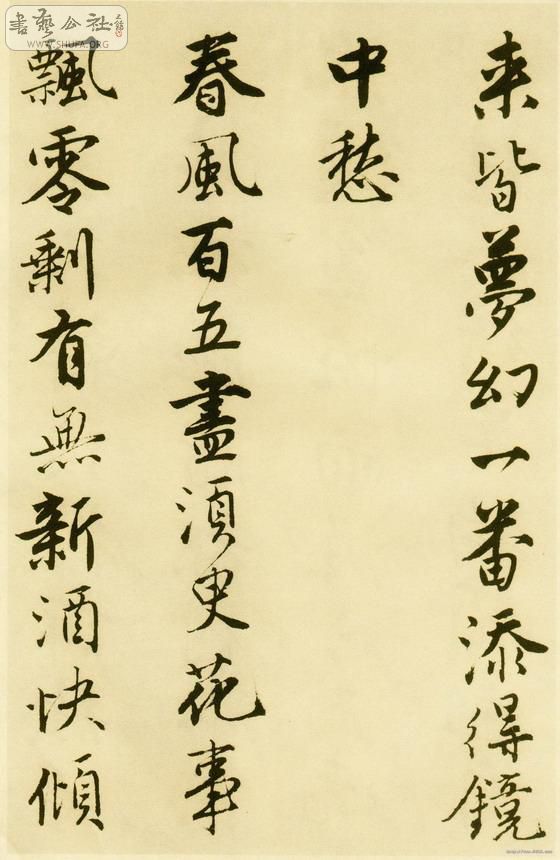 来皆夢幻一番添得鏡
中愁
春風百五盡須臾花事
飄零剩有無新酒快傾
書藝公社
WWW.SHUFA.ORG